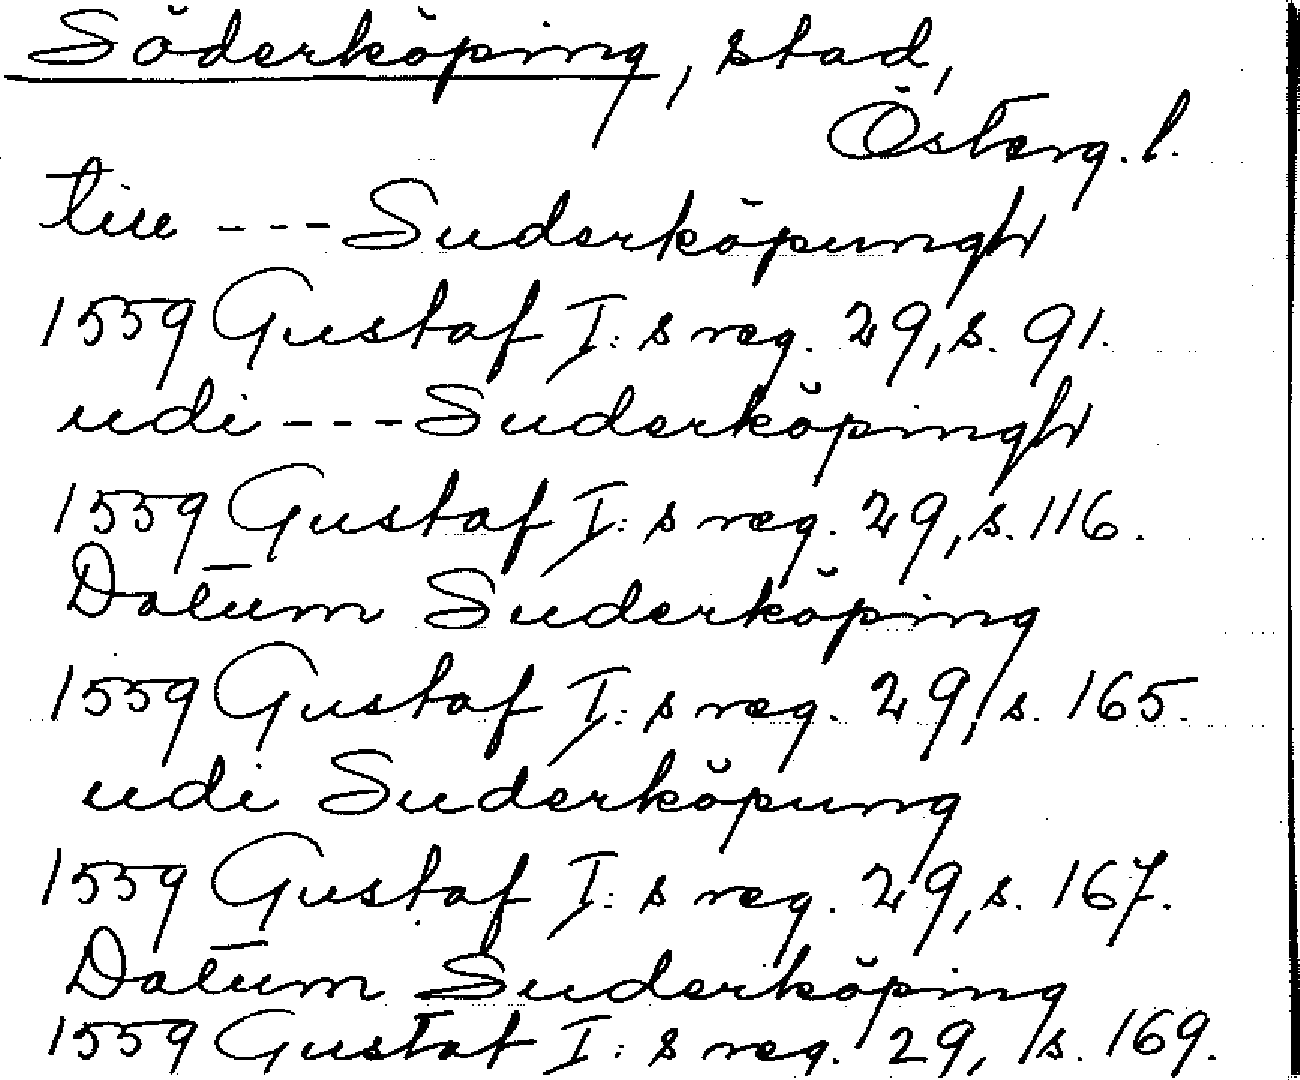 Söderköping, stad,
Österg. l.
till --- Suderköpungh
1559 Gustaf I:s reg. 29, s. 91.
udi --- Suderköpingh
1559 Gustaf I:s reg. 29, s. 116.
Datum Suderköping
1559 Gustaf I:s reg. 29, s. 165.
udi Suderköpung
1559 Gustaf I:s reg. 29, s. 167.
Datum Suderköping
1559 Gustaf I:s reg. 29, s. 169.